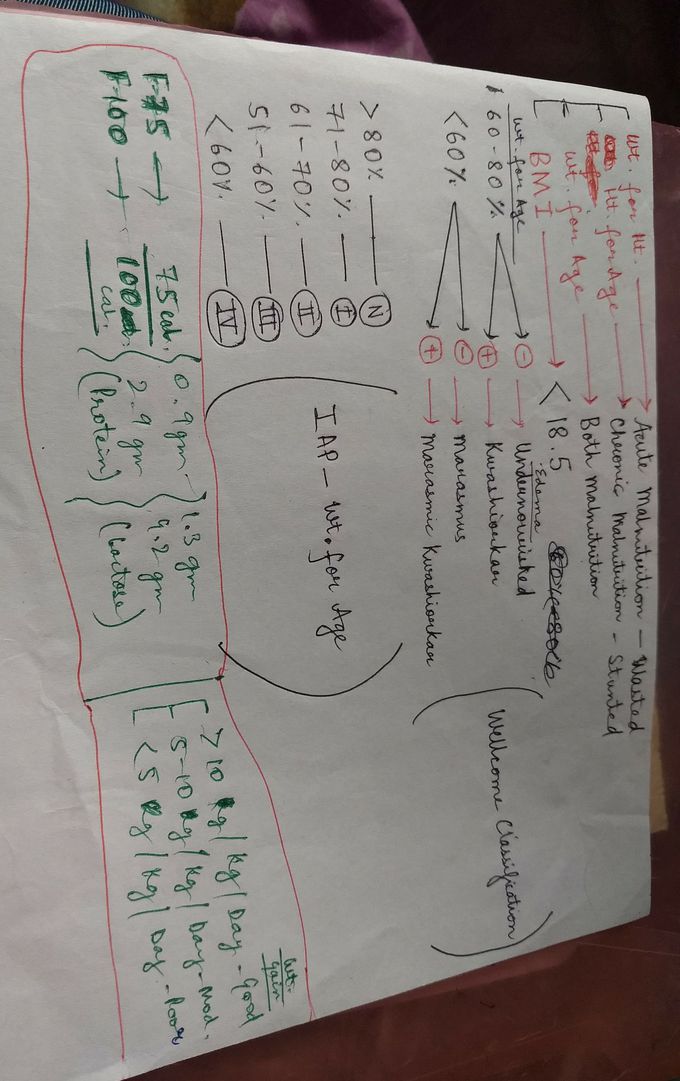 Wt. for Ht. → Acute Malnutrition – Wasted
Ht. for Age → Chronic Malnutrition – Stunted
Wt. for Age → Both Malnutrition
BMI → < 18.5
Wt. for Age
Edema
60-80% → - → Undernourished
→ + → Kwashiorkar
<60% → - → Marasmus
→ + → Marasmic Kwashiorkar
(Wellcome Classification)
>80% — N
71-80% — I
61-70% — II
51-60% — III
<60% — IV
(IAP – Wt. for Age)
F-75 → 75 cal. 0.9 gm – 1.3 gm
F-100 → 100 cal. 2.9 gm 4.2 gm
(Protein) (Lactose)
Wt. gain
>10 kg/kg/Day – Good
5-10 kg/kg/Day – Mod.
<5 kg/kg/Day – Poor